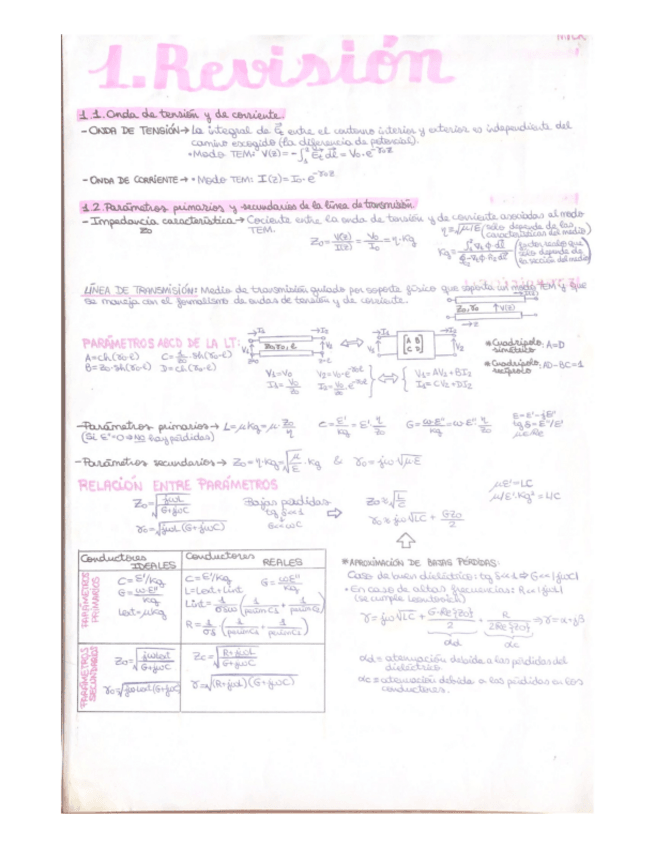 1. Revisión
1.1. Onda de tensión y de corriente.
- ONDA DE TENSIÓN → La integral de E⃗t entre el contorno interior y exterior es independiente del
camino escogido (la diferencia de potencial).
• Modo TEM: V(z) = -∫₁² E⃗t d⃗l = V₀·e^-γ₀z
- ONDA DE CORRIENTE → • Modo TEM: I(z) = I₀·e^-γ₀z
1.2. Parámetros primarios y secundarios de la línea de transmisión
- Impedancia característica → Cociente entre la onda de tensión y de corriente asociadas al modo
Z₀ TEM. η = √μ/ε (sólo depende de las características del medio)
Z₀ = V(z)/I(z) = V₀/I₀ = η·Kg
Kg = (factor real que sólo depende de la sección del medio)
LÍNEA DE TRANSMISIÓN: Medio de transmisión guiado por soporte físico que soporta un modo TEM y que
se maneja con el formalismo de ondas de tensión y de corriente.
Z₀, γ₀ ↑V(z)
→ z
PARÁMETROS ABCD DE LA LT:
A = ch(γ₀·l) C = 1/Z₀ · sh(γ₀·l)
B = Z₀·sh(γ₀·l) D = ch(γ₀·l)
→I₁ Z₀, γ₀, l →I₂ V₁ V₂ ⇔ →I₁ [A B C D] →I₂ V₁ V₂
* Cuadripolo simétrico: A = D
* Cuadripolo recíproco: AD - BC = 1
V₁ = V₀ V₂ = V₀·e^-γ₀l ⇔ V₁ = AV₂ + BI₂
I₁ = V₀/Z₀ I₂ = V₀/Z₀·e^-γ₀l I₁ = CV₂ + DI₂
- Parámetros primarios → L = μKg = μ·Z₀/η C = ε'/Kg = ε'·η/Z₀ G = ω·ε''/Kg = ω·ε''·η/Z₀
(Si ε''=0 ⇒ NO hay pérdidas)
ε = ε' - jε''
tg δ = ε''/ε'
- Parámetros secundarios → Z₀ = η·Kg = √μ/ε · Kg & γ₀ = jω√με
RELACIÓN ENTRE PARÁMETROS
Z₀ = √jωL/G+jωC
γ₀ = √jωL(G+jωC)
Bajas pérdidas
tg δ ≪ 1
G ≪ ωC
⇨
Z₀ ≈ √L/C
γ₀ ≈ jω√LC + GZ₀/2
με' = LC
μ/ε'·Kg² = L/C
Conductores IDEALES
Conductores REALES
PARÁMETROS PRIMARIOS
C = ε'/Kg
G = ω·ε''/Kg
Lext = μKg
C = ε'/Kg G = ωε''/Kg
L = Lext + Lint
Lint = 1/ωδσ (1/perim Ci + 1/perim Ce)
R = 1/σδ (1/perim Ci + 1/perim Ce)
PARÁMETROS SECUNDARIOS
Z₀ = √jωLext/G+jωC
γ₀ = √jωLext(G+jωC)
Zc = √R+jωL/G+jωC
γ = √(R+jωL)(G+jωC)
* APROXIMACIÓN DE BAJAS PÉRDIDAS:
Caso de buen dieléctrico: tg δ ≪ 1 ⇒ G ≪ |jωC|
• En caso de altas frecuencias: R ≪ |jωL|
(se cumple)
γ = jω√LC + G·Re{Z₀}/2 + R/2Re{Z₀} ⇒ γ = α + jβ
αd αc
αd = atenuación debida a las pérdidas del
dieléctrico.
αc = atenuación debida a las pérdidas en los
conductores.